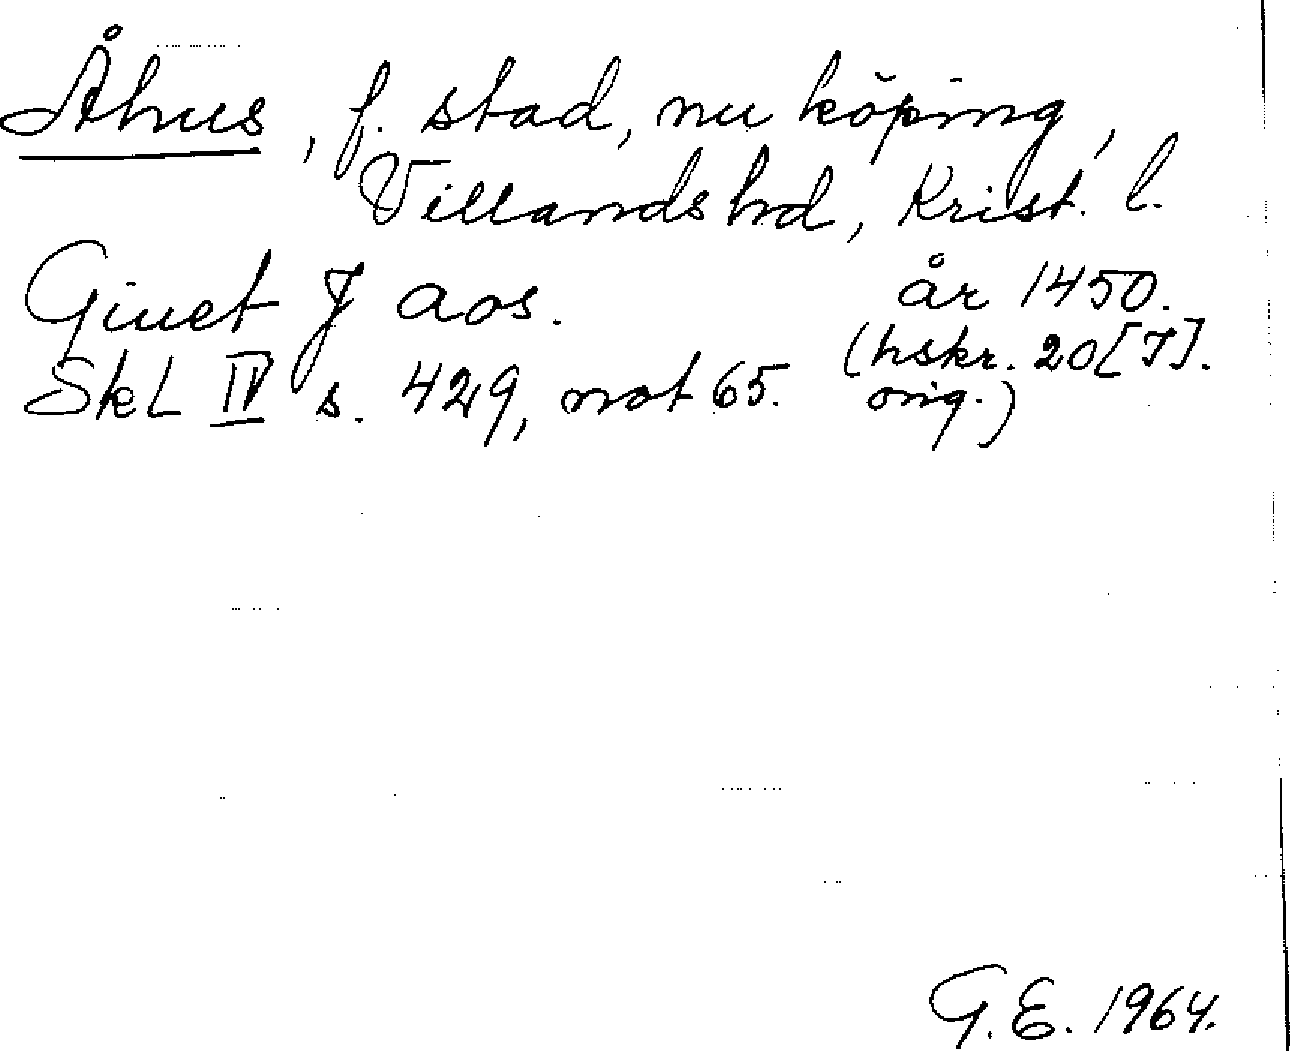 Åhus, f. stad, nu köping,
Villands hd, Krist. l.
Giuet J aos. år 1450.
SkL IV s. 429, not 65. (hskr. 20[J].
orig.)
G. E. 1964.